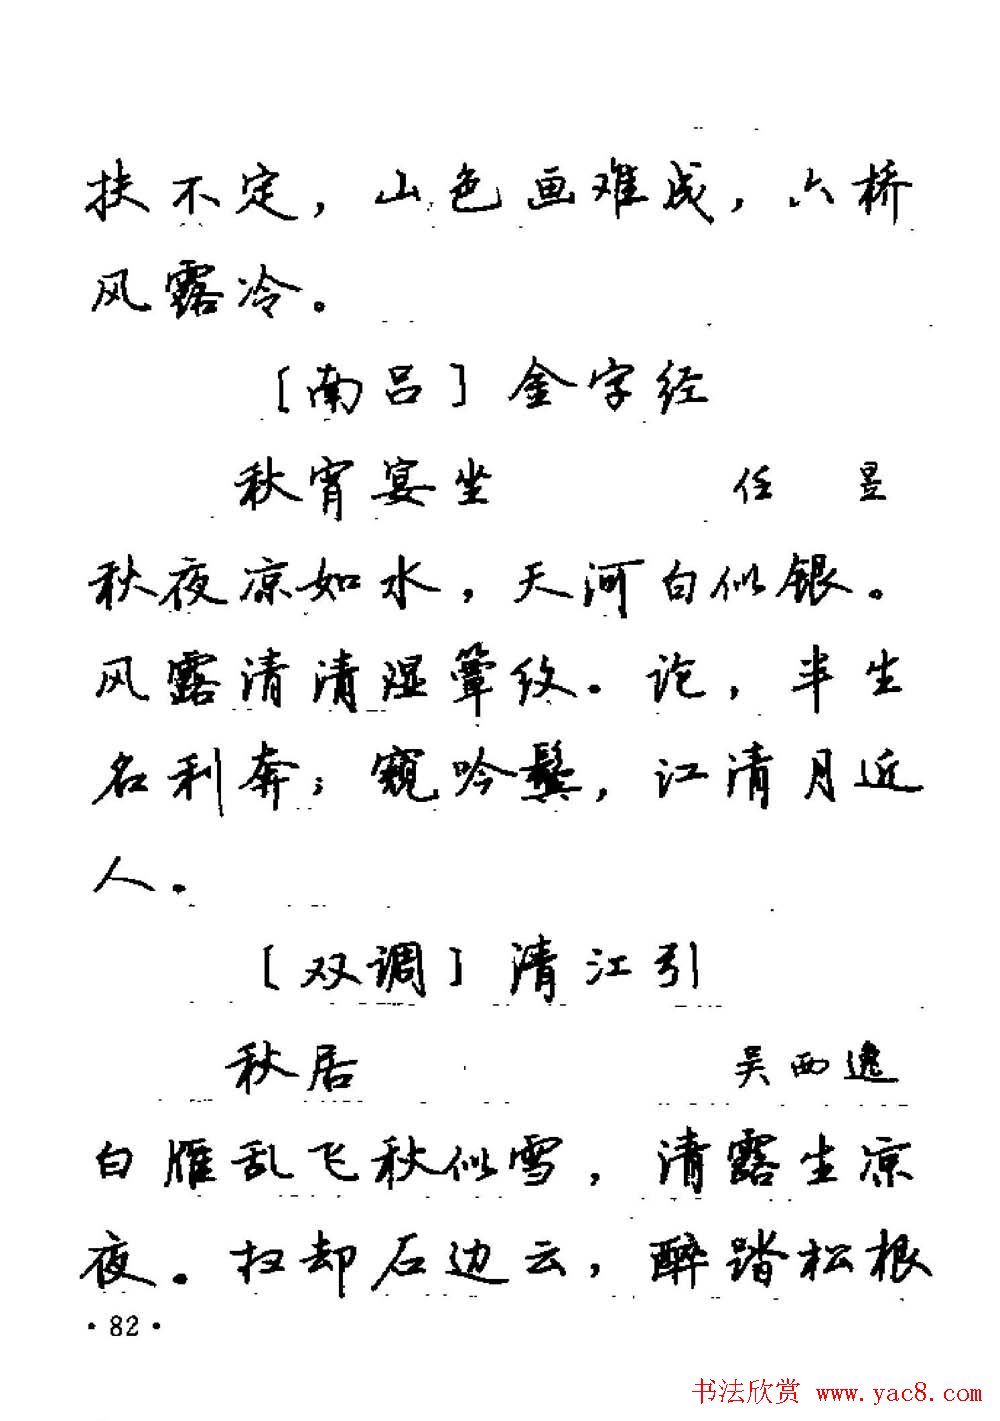 扶不定，山色画难成，六桥
风露冷。
[南吕]金字经
秋宵宴坐 任昱
秋夜凉如水，天河白似银。
风露清清湿簟纹。论，半生
名利奔；窥吟鬓，江清月近
人。
[双调]清江引
秋居 吴西逸
白雁乱飞秋似雪，清露生凉
夜。扫却石边云，醉踏松根
·82·
书法欣赏 www.yac8.com